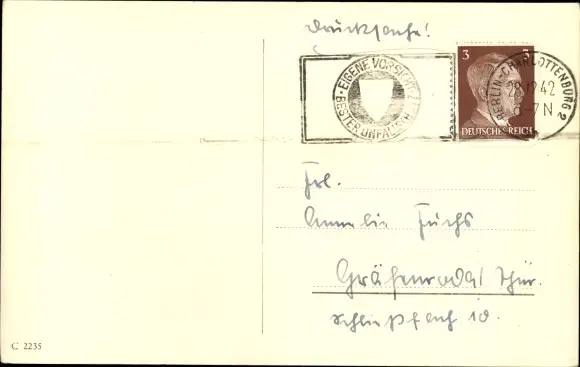 Drucksache!
EIGENE VORSICHT
BESTER UNFALLSCHUTZ
3 3
DEUTSCHES REICH
BERLIN-CHARLOTTENBURG 2
28.12.42
6-7N
Frl.
Annelie Fuchs
Gräfenroda/Thür.
Schließfach 10.
C 2235